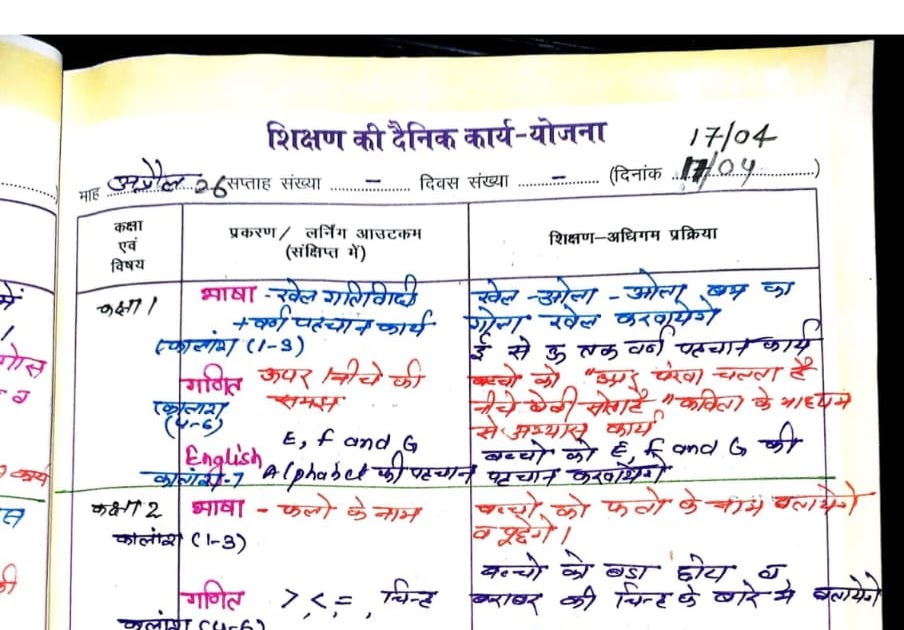 शिक्षण की दैनिक कार्य-योजना
17/04
माह अप्रैल 26 सप्ताह संख्या ..... – ..... दिवस संख्या ..... – ..... (दिनांक 17/04 .....)
कक्षा एवं विषय
प्रकरण / लर्निंग आउटकम (संक्षिप्त में)
शिक्षण–अधिगम प्रक्रिया
कक्षा 1
भाषा - खेल गतिविधी
+ वर्ण पहचान कार्य
(कालांश (1-3)
खेल - ओला - ओला बम का
गोला खेल करवायेगे
ई से ऊ तक वर्ण पहचान कार्य
गणित ऊपर / नीचे की
समझ
(कालांश
(4-6)
बच्चो को "ऊपर पंखा चलता है
नीचे बेबी सोता है" कविता के माध्यम
से अभ्यास कार्य
English E, f and G
कालांश-7 Alphabet की पहचान
बच्चो को E, f and G की
पहचान करवायेगे
कक्षा 2
भाषा - फलो के नाम
कालांश (1-3)
बच्चो को फलो के नाम बतायेगे
व पूछेगे।
गणित > < = , चिन्ह
कालांश (4-6)
बच्चो को बडा छोटा व
बराबर की चिन्ह के बारे मे बतायेगे
में
कार्य
की